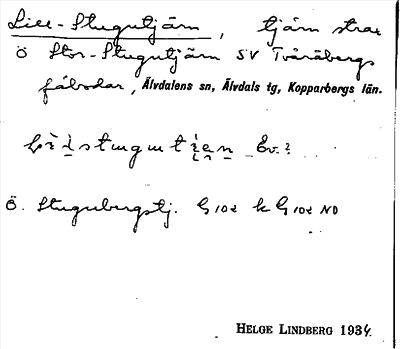 Lill-Stugutjärn, tjärn strax
Ö Stor-Stugutjärn SV Tvåråbergs
fäbodar, Älvdalens sn, Älvdals tg, Kopparbergs län.
Ö. Stugubergstj. G 102 k G 102 NO
HELGE LINDBERG 1934.